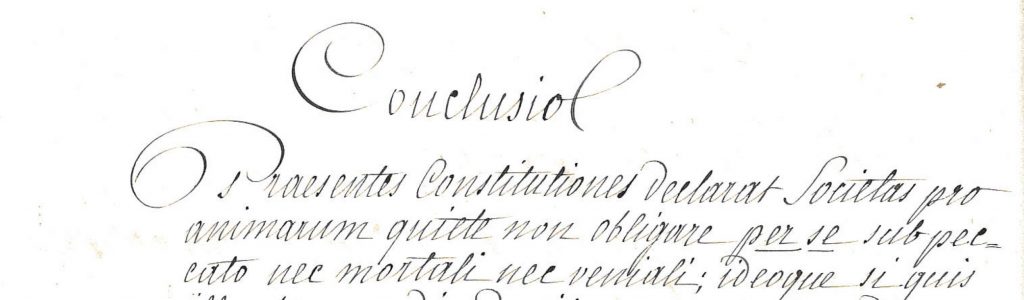 Conclusio
Praesentes Constitutiones declarat Societas pro
animarum quiete non obligare per se sub pec=
cato nec mortali nec veniali; ideoque si quis